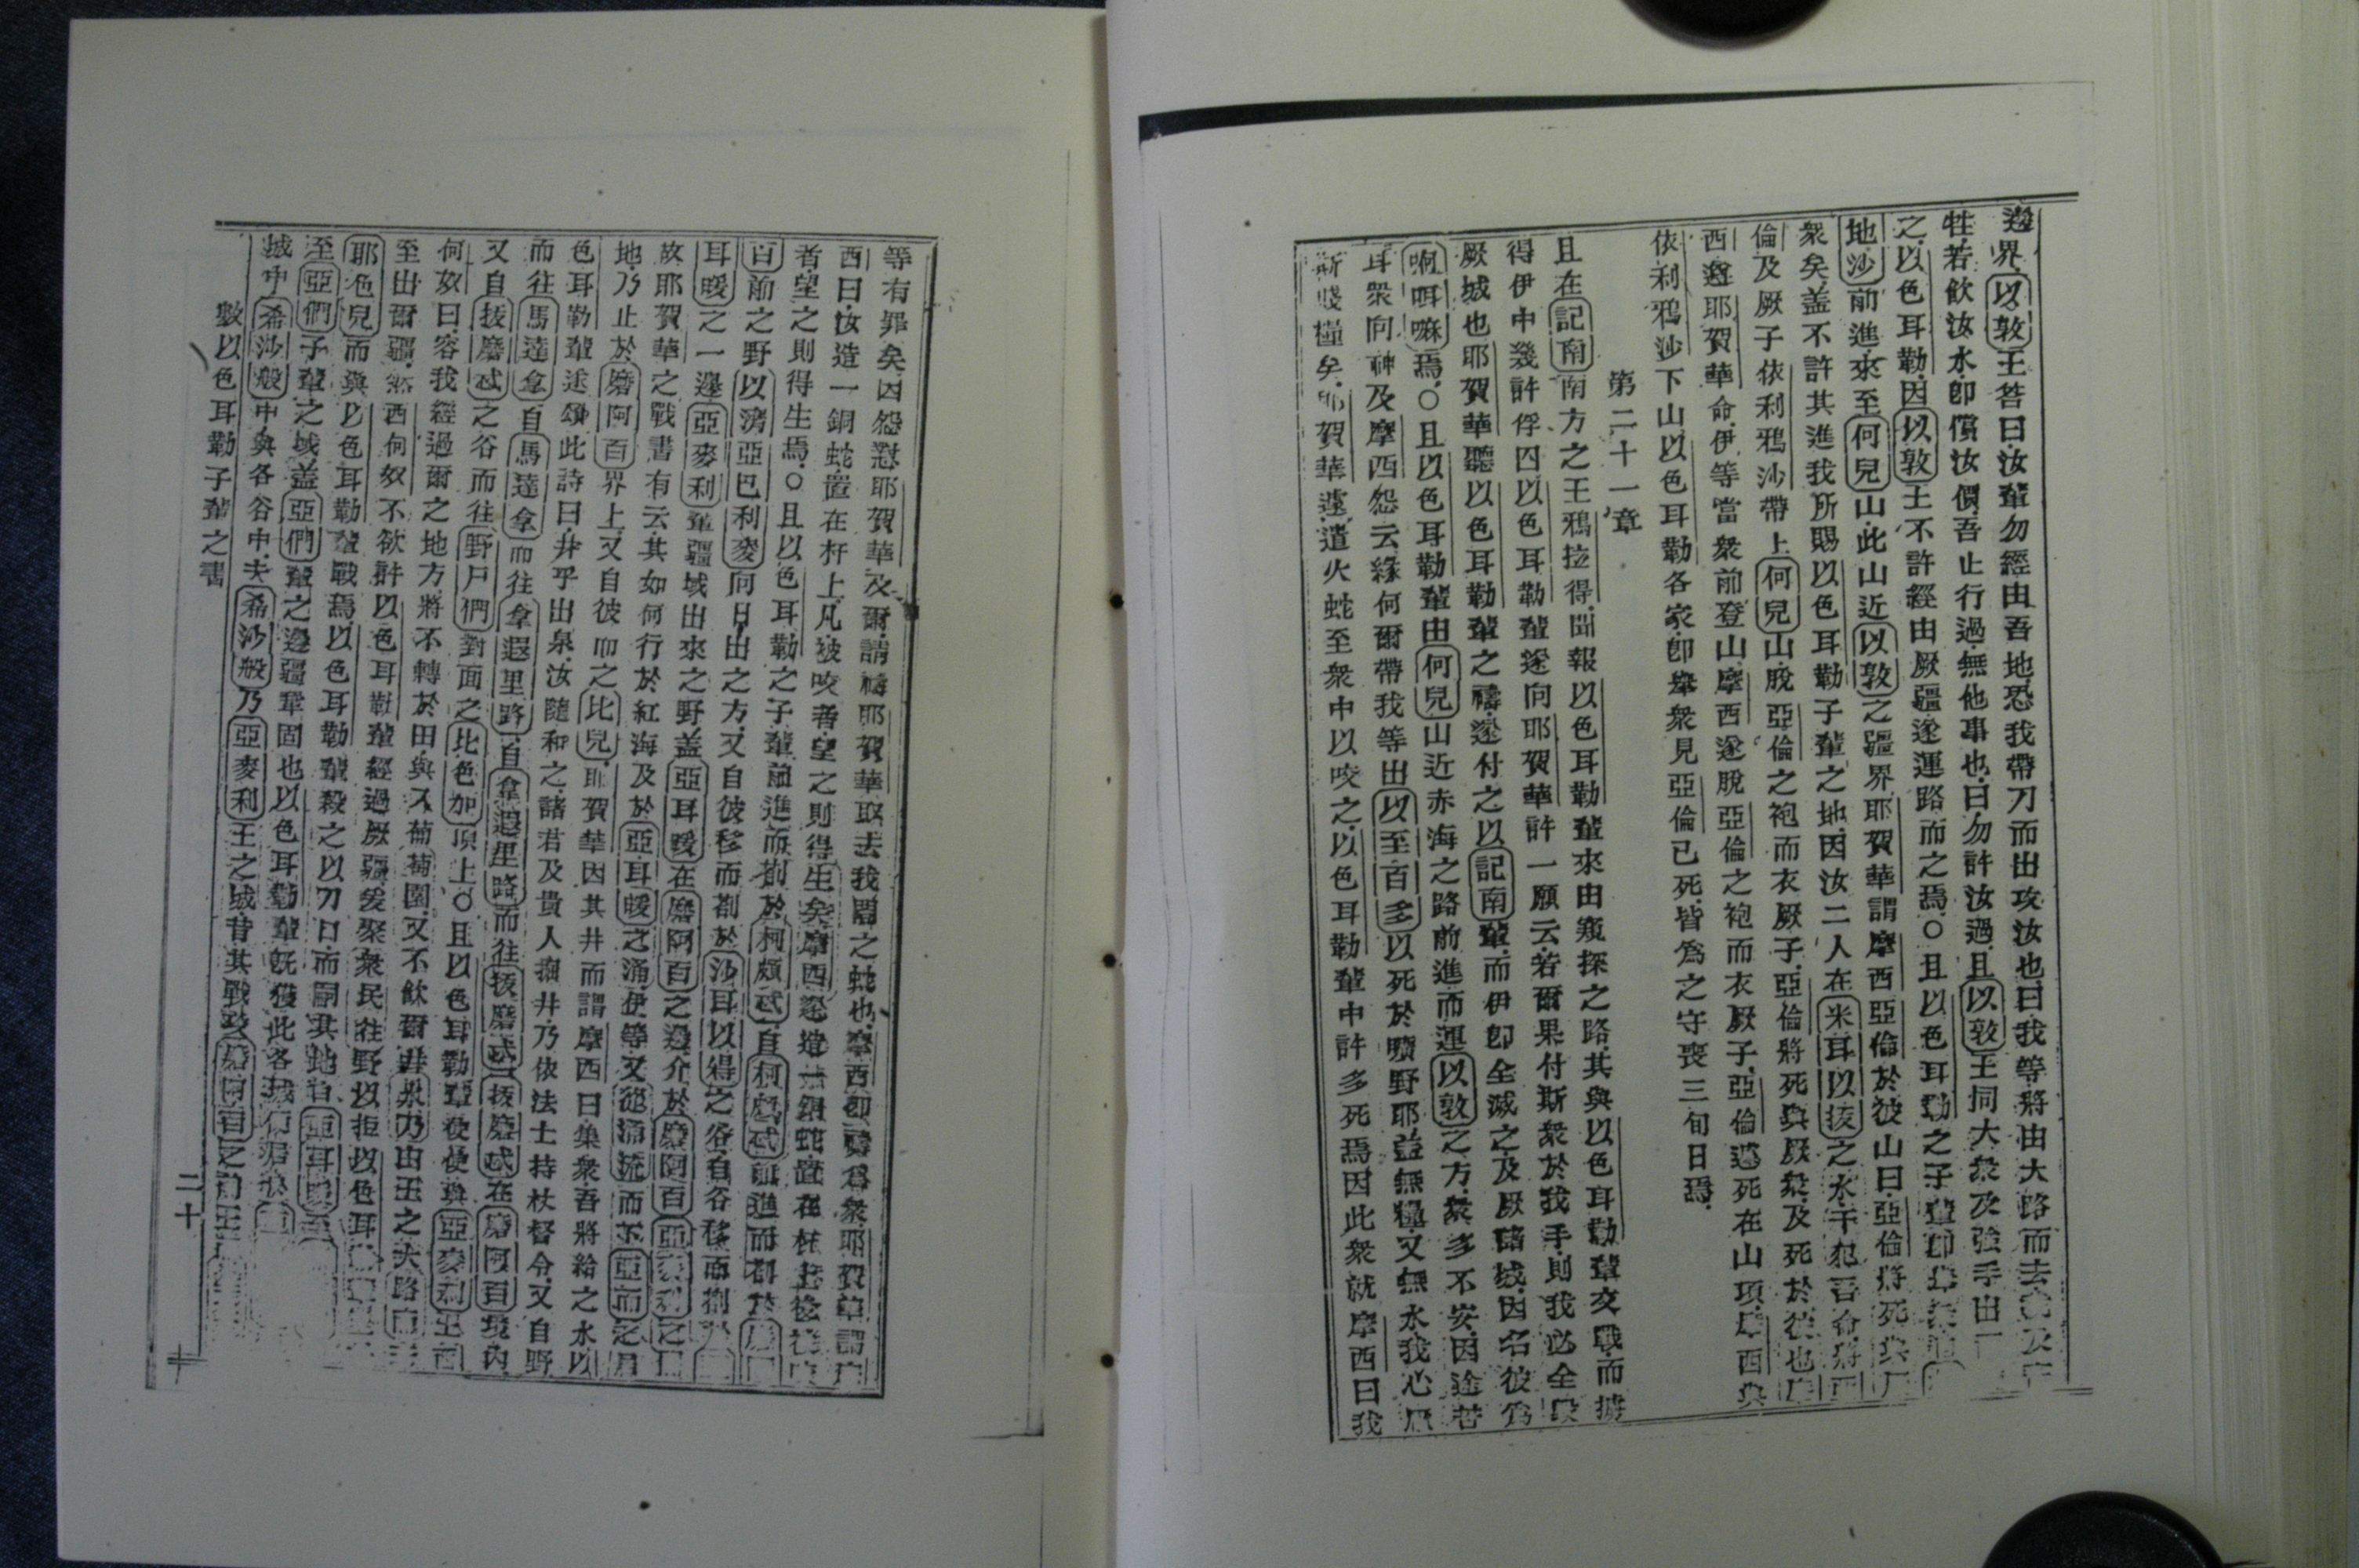 邊界以敦王答曰汝輩勿經由吾地恐我帶刀而出攻汝也曰我等將由大路而去
牲若飲汝水卽償汝價吾止行過無他事也曰勿許汝過且以敦王同大衆及強手出
之以色耳勒因以敦王不許經由厥疆遂運路而之焉○且以色耳勒之子輩卽
地沙前進來至何兒山此山近以敦之疆界耶賀華謂摩西亞倫於彼山曰亞倫將死與
衆矣蓋不許其進我所賜以色耳勒子輩之地因汝二人在米耳以拔之水干犯吾命將
倫及厥子依利鴉沙帶上何兒山脫亞倫之袍而衣厥子亞倫將死與厥衆及死於彼也
西遵耶賀華命伊等當衆前登山摩西遂脫亞倫之袍而衣厥子亞倫遂死在山項摩西與
依利鴉沙下山以色耳勒各家卽舉衆見亞倫已死皆爲之守喪三旬日焉
第二十一章
且在記南南方之王鴉拉得聞報以色耳勒輩來由窺探之路其與以色耳勒輩交戰而擄
得伊中幾許俘囚以色耳勒輩遂向耶賀華許一願云若爾果付斯衆於我手則我必全
厥城也耶賀華聽以色耳勒輩之禱遂付之以記南輩而伊卽全滅之及厥諸城因名彼爲
啊咡嘛焉○且以色耳勒輩由何兒山近赤海之路前進而運以敦之方衆多不安因途苦
耳衆向神及摩西怨云緣何爾帶我等出以至百多以死於曠野耶蓋無糧又無水我心厭
斯賤糧矣耶賀華遂遣火蛇至衆中以咬之以色耳勒輩中許多死焉因此衆就摩西曰我
等有罪矣因怨懟耶賀華及爾請禱耶賀華取去我間之蛇也摩西卽禱爲衆耶賀華謂
西曰汝造一銅蛇置在杆上凡被咬者望之則得生矣摩西遂造一銅蛇置在杆上
者望之則得生焉○且以色耳勒之子輩前進而劄於柯頗忒自柯頗忒前進而劄於
百前之野以濟亞巴利麥向日出之方又自彼移而劄於沙耳以得之谷自谷移而劄
耳暖之一邊亞麥利輩疆域出來之野蓋亞耳暖在磨阿百之邊介於磨阿百亞麥利之
故耶賀華之戰書有云其如何行於紅海及於亞耳暖之涌伊等又從涌流而下亞而之
地乃止於磨阿百界上又自彼而之比兒耶賀華因其井而謂摩西曰集衆吾將給之水以
色耳勒輩遂頌此詩曰井乎出泉汝隨和之諸君及貴人掘井乃依法士持杖督令又自野
而往馬達拿自馬達拿而往拿遐里路自拿遐里路而往拔磨忒拔磨忒在磨阿百境內
又自拔磨忒之谷而往野戶們對面之比色加項上○且以色耳勒輩使使與亞麥利王西
何奴曰容我經過爾之地方將不轉於田與入葡萄園又不飲爾井泉乃由王之大路
至出爾疆然西何奴不欲許以色耳勒輩經過厥疆爰聚衆民往野以拒以色耳
耶色兒而與以色耳勒輩戰焉以色耳勒輩殺之以刀口而嗣其地自亞耳暖至
至亞們子輩之域蓋亞們輩之邊疆鞏固也以色耳勒輩旣獲此各城
城中希沙般中與各谷中夫希沙般乃亞麥利王之城昔其戰攻磨阿百之前王
數以色耳勒子輩之書
二十